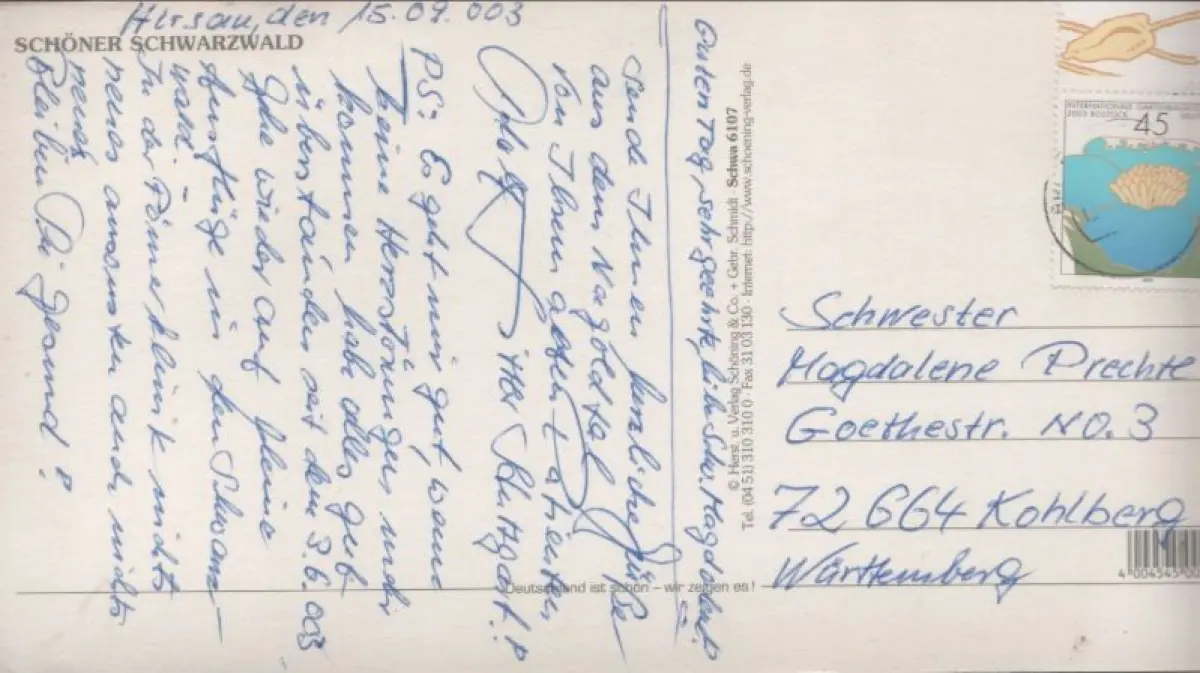 Hirsau, den 15.09.003
SCHÖNER SCHWARZWALD
Guten Tag, sehr geehrte, liebe Schw. Magdalena!
sende Ihnen herzliche Grüße
aus dem Nagoldtal
von Ihrem alten Patienten
Adolf
PS: Es geht mir gut, wenn
keine Herzstörungen mehr
kommen, habe alles gut
überstanden seit dem 3.6.003
Gehe wieder auf kleine
Ausflüge in den Schwarz-
wald.
In der Römerklinik nichts
neues ansonsten auch nichts
neues
Bleiben Sie gesund!
© Herst. u. Verlag Schöning & Co. + Gebr. Schmidt · Schwa 6107
Tel. (04 51) 310 310 0 · Fax 31 03 130 · Internet: http://www.schoening-verlag.de
Deutschland ist schön – wir zeigen es!
INTERNATIONALE
2003 ROSTOCK
45
Schwester
Magdalene Prechte
Goethestr. No. 3
72 664 Kohlberg
Württemberg
4 004545